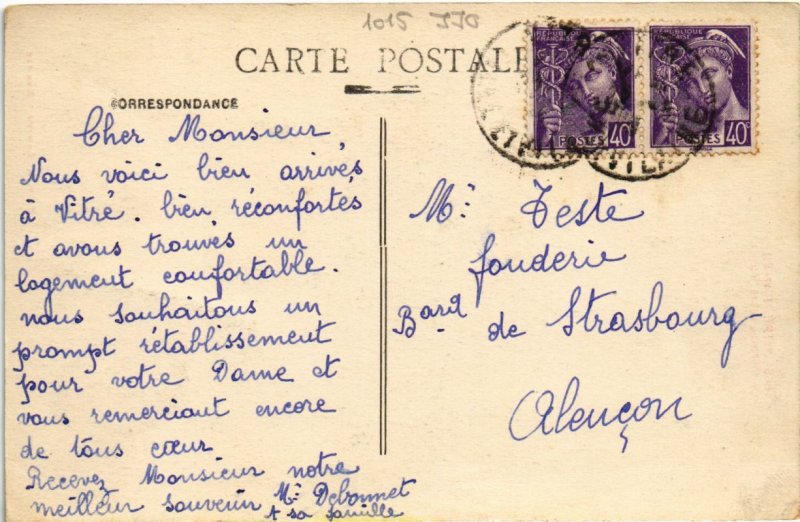 1015 JJO
CARTE POSTALE
CORRESPONDANCE
RÉPUBLIQUE FRANÇAISE
POSTES 40c
RÉPUBLIQUE FRANÇAISE
POSTES 40c
Cher Monsieur,
Nous voici bien arrivés
à Vitré. bien réconfortés
et avons trouvés un
logement confortable.
nous souhaitons un
prompt rétablissement
pour votre Dame et
vous remerciont encore
de tous cœur
Recevez Monsieur notre
meilleur souvenir Mr Debonnet
& sa famille
Mr Teste
fonderie
Bard de Strasbourg
Alençon